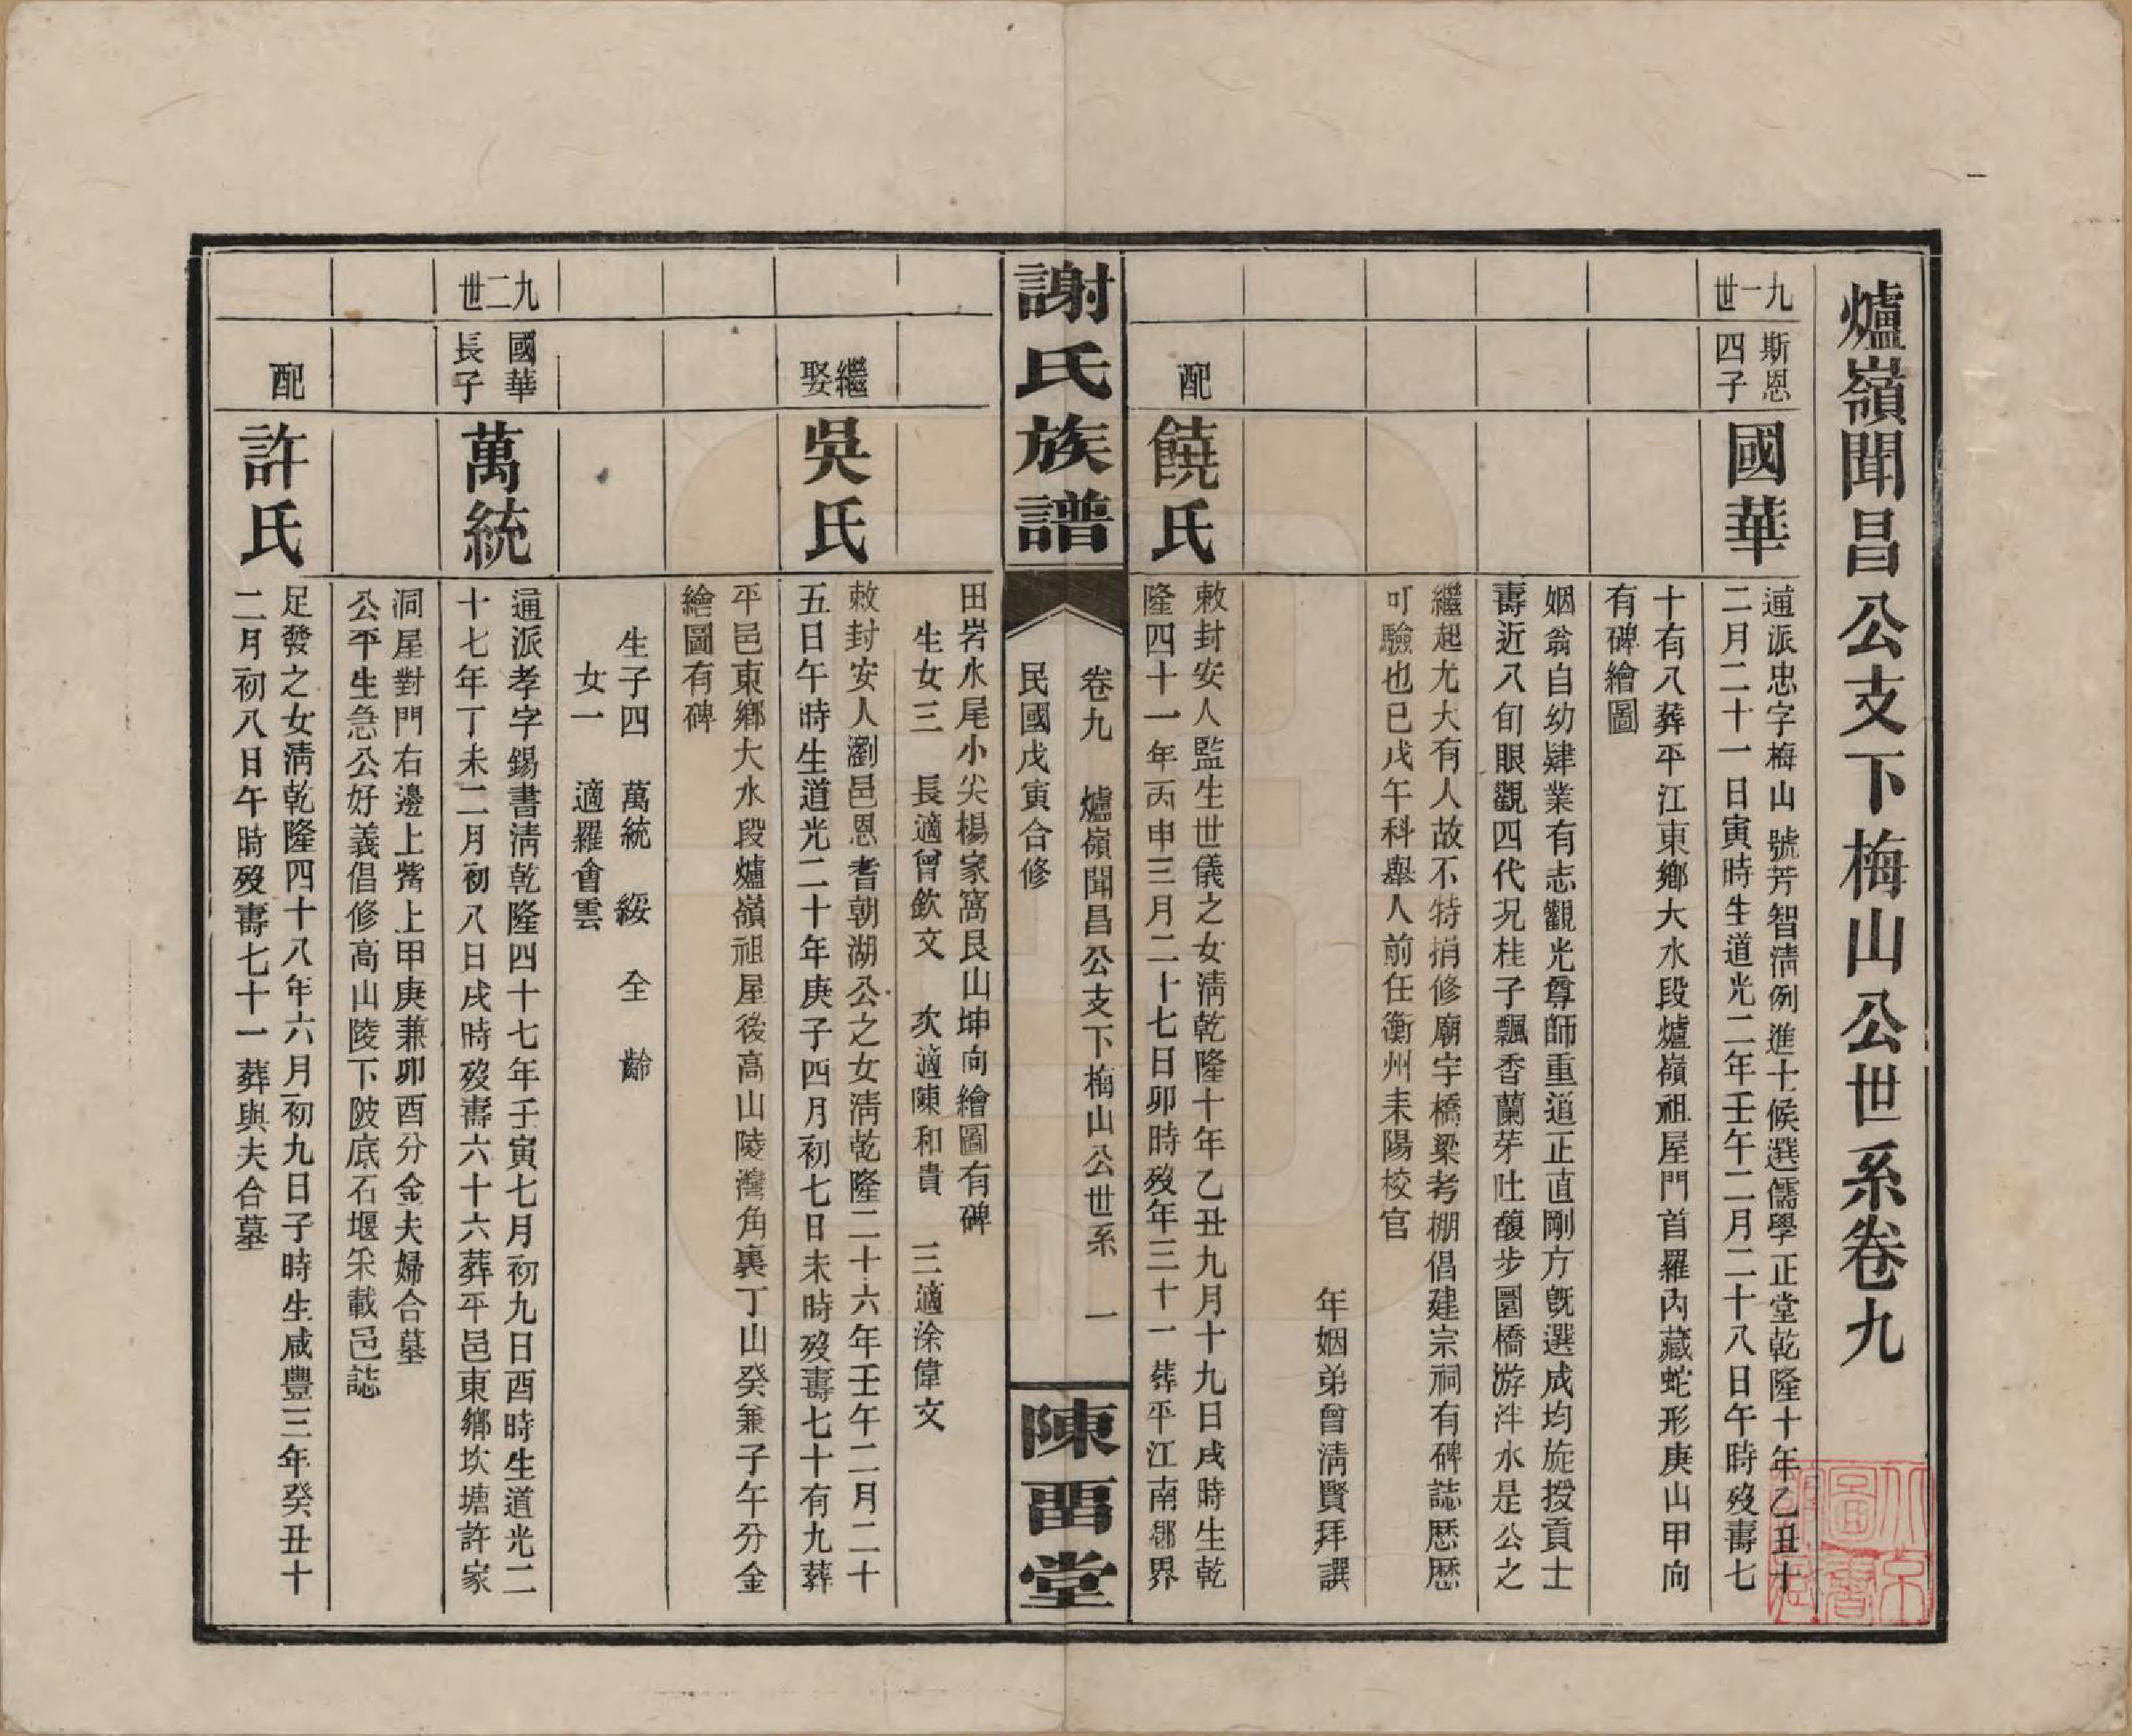 爐嶺聞昌公支下梅山公世系卷九
九一世
斯恩
四子
國華
通派忠字梅山號芳智淸例進士候選儒學正堂乾隆十年乙丑十
二月二十一日寅時生道光二年壬午二月二十八日午時歿壽七
十有八葬平江東鄉大水段爐嶺祖屋門首羅內藏蛇形庚山甲向
有碑繪圖
姻翁自幼肄業有志觀光尊師重道正直剛方旣選成均旋授貢士
壽近八旬眼觀四代況桂子飄香蘭芽吐馥步圜橋游泮水是公之
繼起尤大有人故不特捐修廟宇橋梁考棚倡建宗祠有碑誌歷歷
可驗也已戊午科舉人前任衡州耒陽校官
年姻弟曾淸賢拜譔
配
饒氏
敕封安人監生世儀之女淸乾隆十年乙丑九月十九日戌時生乾
隆四十一年丙申三月二十七日卯時歿年三十一葬平江南鄉界
謝氏族譜
卷九 爐嶺聞昌公支下梅山公世系 一
民國戊寅合修
陳畱堂
田岩水尾小尖楊家窩艮山坤向繪圖有碑
生女三 長適曾欽文 次適陳和貴 三適涂偉文
繼娶
吳氏
敕封安人瀏邑恩耆朝湖公之女淸乾隆二十六年壬午二月二十
五日午時生道光二十年庚子四月初七日未時歿壽七十有九葬
平邑東鄉大水段爐嶺祖屋後高山陵灣角裏丁山癸兼子午分金
繪圖有碑
生子四 萬統 綏 全 齡
女一 適羅會雲
九二世
國華
長子
萬統
通派孝字錫書淸乾隆四十七年壬寅七月初九日酉時生道光二
十七年丁未二月初八日戌時歿壽六十六葬平邑東鄉坎塘許家
洞屋對門右邊上嘴上甲庚兼卯酉分金夫婦合墓
公平生急公好義倡修高山陵下陂底石堰采載邑誌
配
許氏
足發之女淸乾隆四十八年六月初九日子時生咸豐三年癸丑十
二月初八日午時歿壽七十一葬與夫合墓